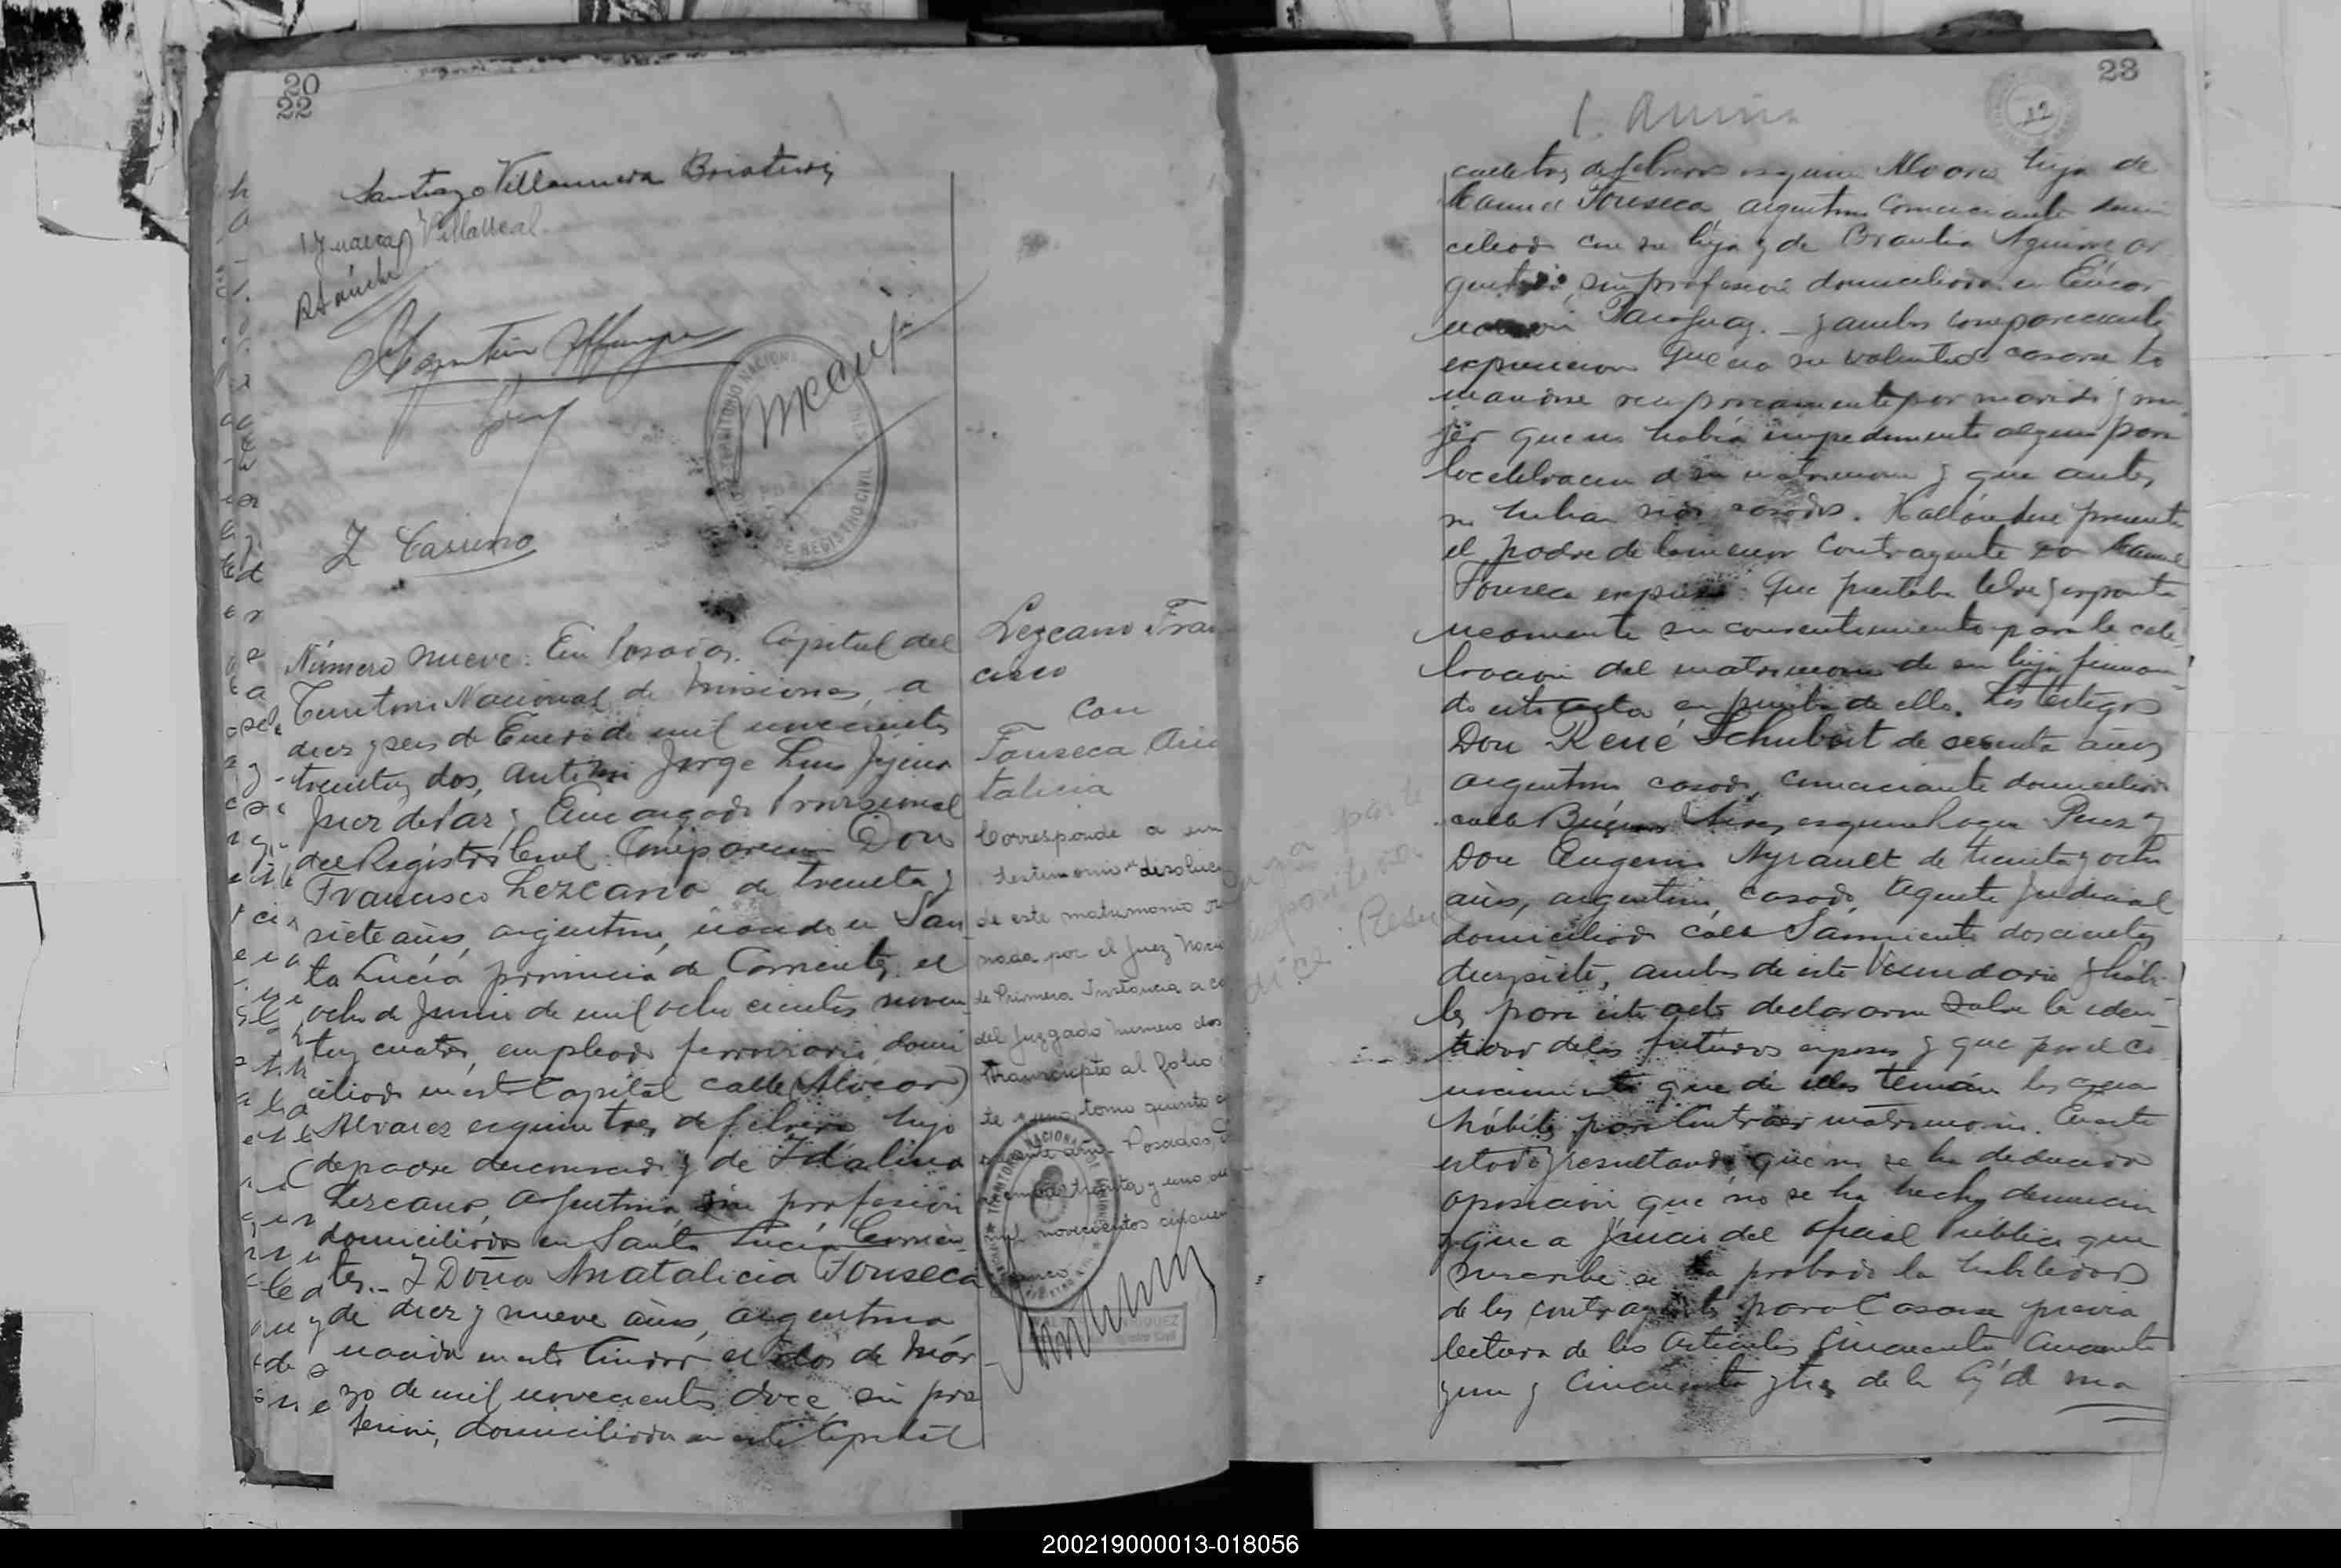 20
22
Santiago Villanueva
Villarreal
Número nueve: En Posadas Capital del
Territorio Nacional de Misiones, a
diez y seis de Enero de mil novecientos
treinta y dos, ante mi Jorge Luis
Juez de Paz y Encargado Provisional
del Registro Civil: Comparecen Don
Francisco Lezcano de treinta y
siete años, argentino, nacido en San
ta Lucía provincia de Corrientes el
ocho de Junio de mil ocho cientos noven
ta y cuatro, empleado ferroviario, domi
ciliado en esta Capital calle (Alvear)
Alvarez esquina tres de febrero hijo
de padre desconocido y de Idalina
Lezcano, argentina, sin profesión
domiciliada en Santa Lucía Corrien
tes.- Y Doña Anatalicia Fonseca
de diez y nueve años, argentina
nacida en esta Ciudad el dos de Mar
zo de mil novecientos doce, sin pro
fesión, domiciliada en esta Capital
Lezcano Fran
cisco
con
Fonseca Ana
talicia
Corresponde a un
testimonio disoluci
de este matrimonio or
nada por el Juez Naci
de Primera Instancia a ca
del Juzgado numero dos
transcripto al folio
te y uno, tomo quinto
Posadas,
treinta y uno
mil novecientos cincuen
TERRITORIO NACIONAL
REGISTRO CIVIL
23
12
calle tres de febrero esquina Alvarez hija de
Manuel Fonseca, argentino comerciante domi
ciliado con su hija y de Braulia Aguirre ar
gentina, sin profesión domiciliada en Encar
nación Paraguay.- y ambos comparecientes
expresaron que era su voluntad casarse to
mandose reciprocamente por marido y mu
jer que no había impedimento alguno para
la celebracion de su matrimonio y que antes
no habian sido casados. Hallándose presente
el padre de la menor contrayente don Manuel
Fonseca expuso: Que prestaba libre y esponta
neamente su consentimiento para la cele
bracion del matrimonio de su hija firman
do esta acta en prueba de ello. Los testigos
Don René Schubert de sesenta años
argentino casado, comerciante domiciliado
calle Buenos Aires esquina Roque Perez y
Don Eugenio Ayrault de treinta y ocho
años, argentino, casado, Agente Judicial
domiciliado calle Sarmiento doscientos
diez y siete, ambos de este Vecindario y hábi
les para este acto declararon sobre la iden
tidad de los futuros esposos y que por el co
nocimiento que de ellos tenían los creian
hábiles para contraer matrimonio. En este
estado y resultando que no se ha deducido
oposición que no se ha hecho denuncia
y que a juicio del oficial Público que
suscribe se ha probado la habilidad
de los contrayentes para Casarse previa
lectura de los Artículos cincuenta cincuenta
y uno y cincuenta y tres de la Ley de ma
200219000013-018056